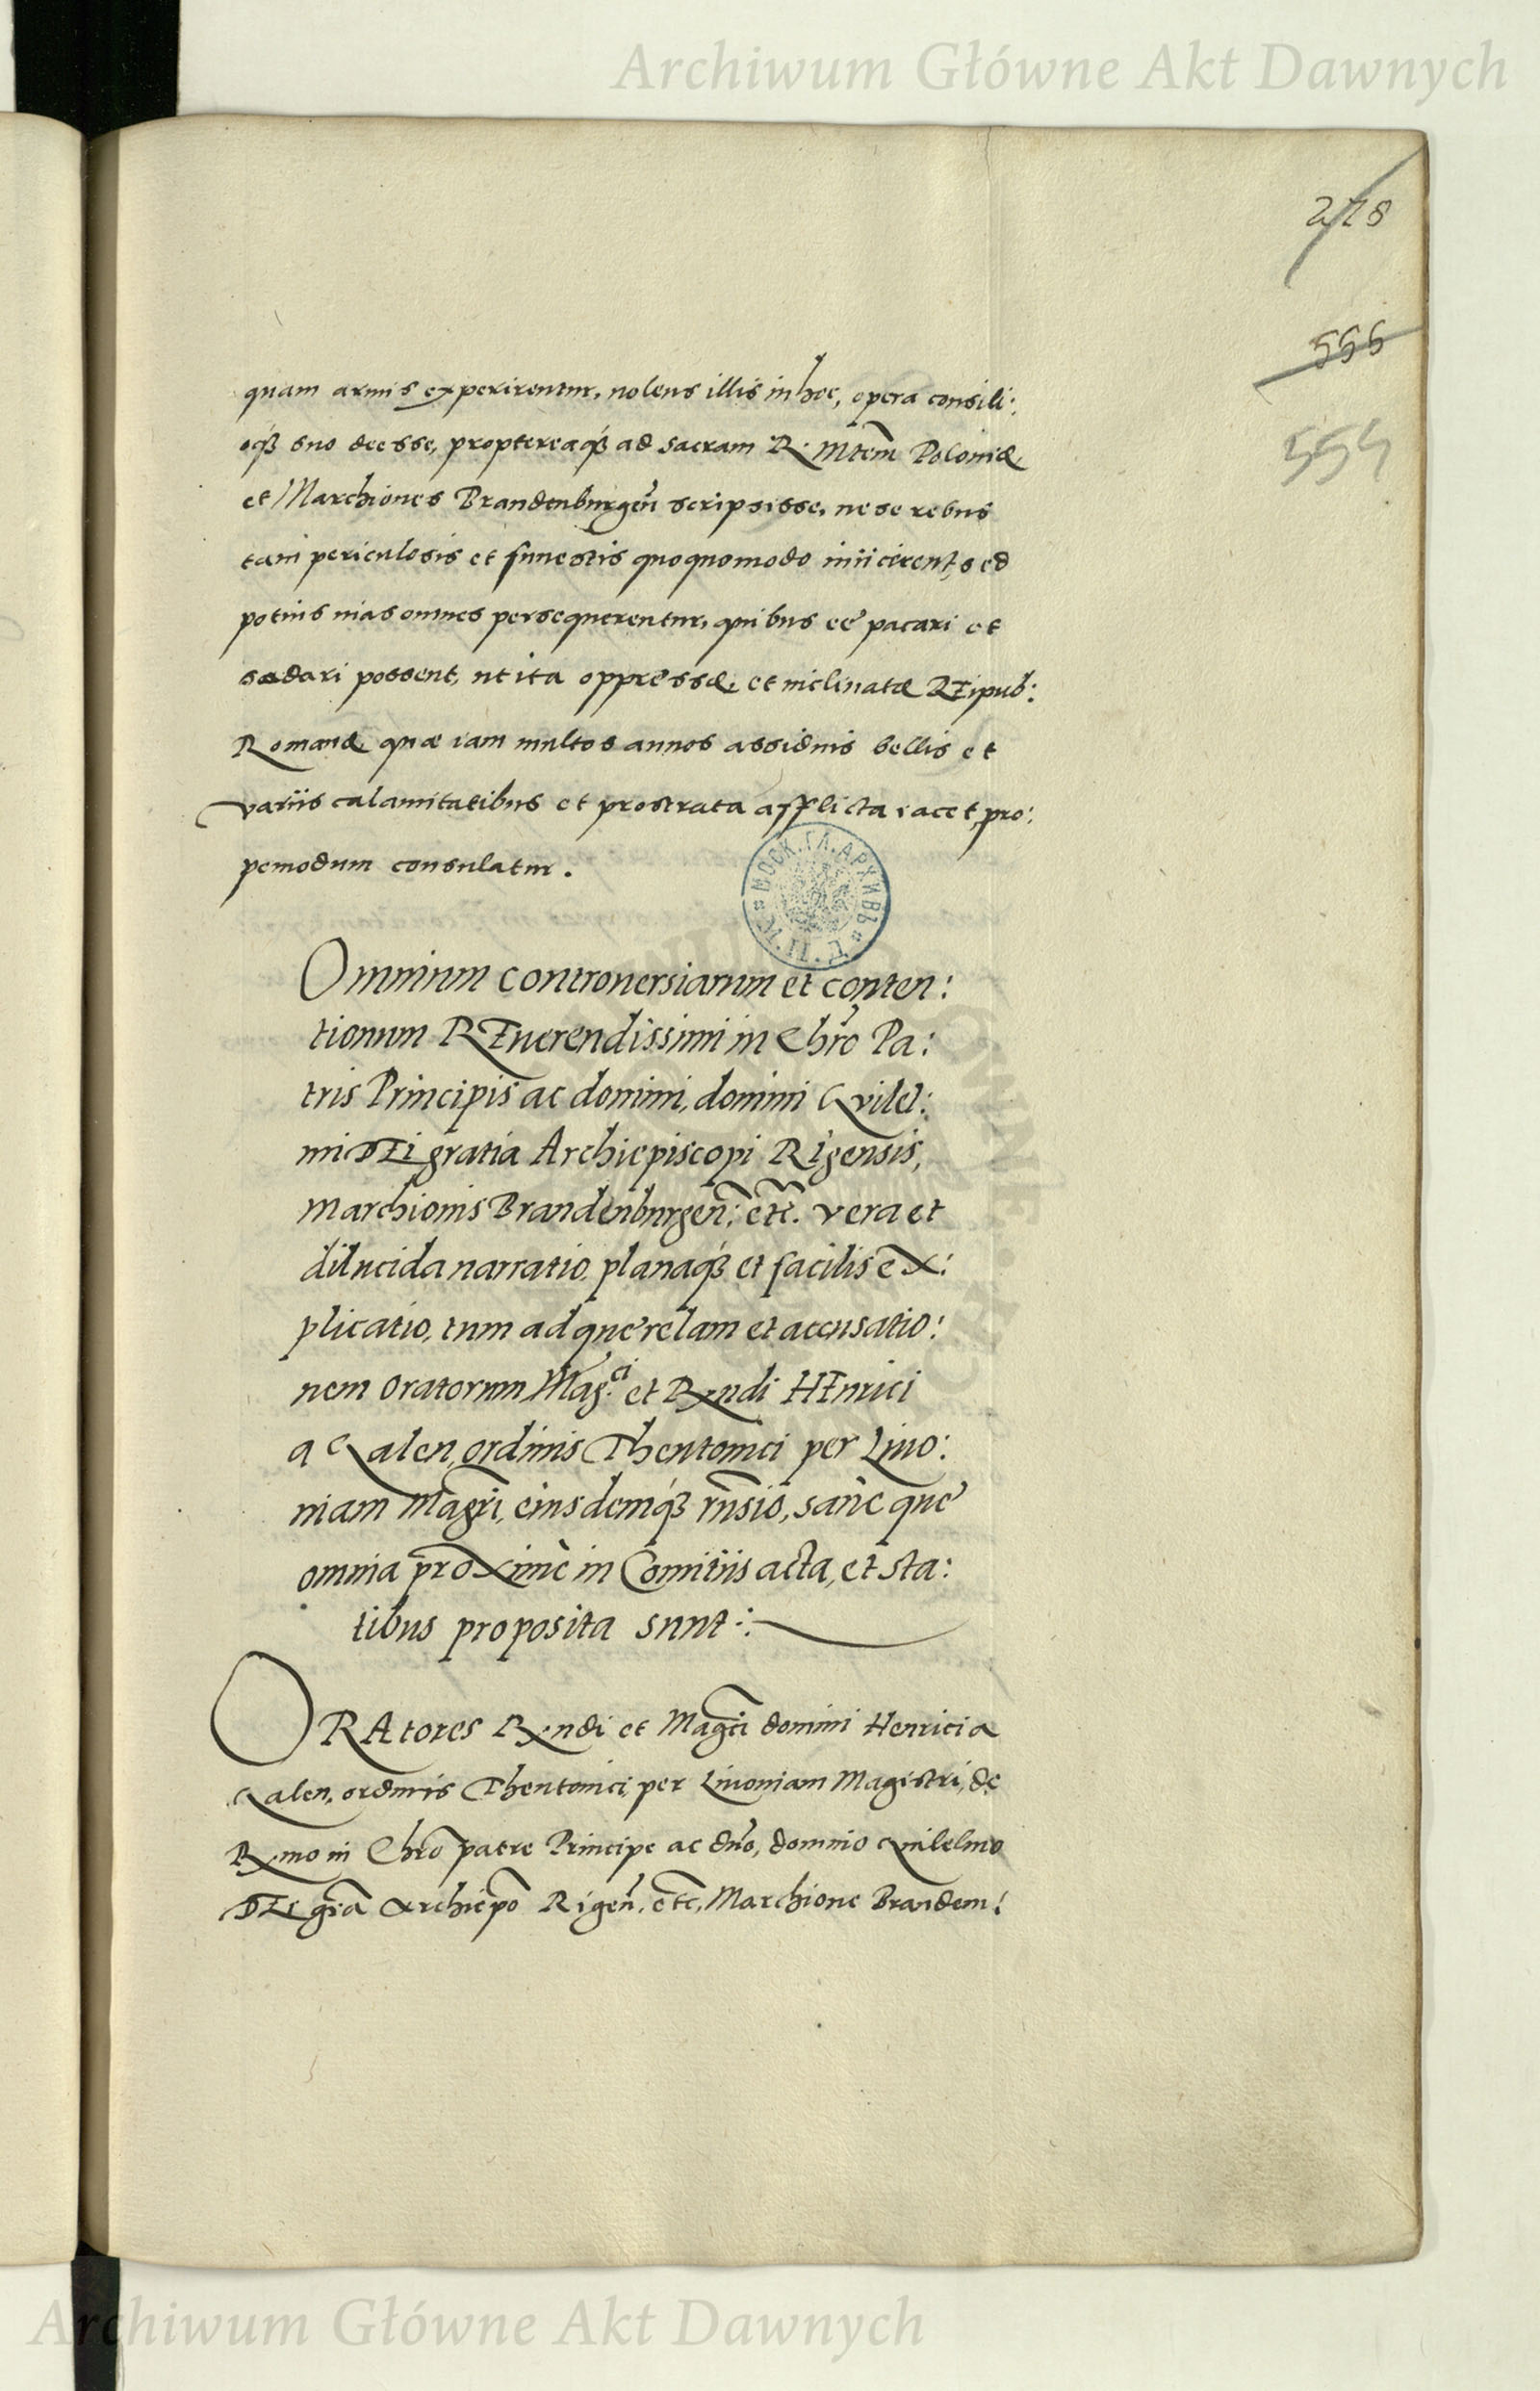 Archiwum Główne Akt Dawnych
218
555
554
quam armis experirentur, nolens illis in hoc, opera consili:
oq́ꝫ suo deesse, proptereaq́ꝫ ad sacram R. Mtem Poloniæ
et Marchiones Brandenburgeñ scripsisse, ne se rebus
tam periculosis et funestis quoquomodo iniicerent, sed
potius uias omnes persequerentur, quibus ee pacari et
sedari possent, ut ita oppressæ, et inclinatæ REipub:
Romanæ, quæ iam multos annos assiduis bellis et
variis calamitatibus et prostrata afflicta iacet, pro:
pemodum consulatur.
МОСК. ГЛ. АРХИВЪ
Omnium controuersiarum et conten:
tionum REuerendissimi in Chro Pa:
tris Principis ac domini, domini Gvilel:
mi DEi gratia Archiepiscopi Rigensis,
Marchionis Brandenburgeñ: etc. vera et
dilucida narratio, planaq́ꝫ et facilis ex:
plicatio, tum ad querelam et accusatio:
nem Oratorum Mag.ci et Rndi HEnrici
a Galen, ordinis Theutonici per Liuo:
niam Magri, eiusdemq́ꝫ rnsio, sane que
omnia proxime in Comitiis acta, et sta:
tibus proposita sunt:
ORAtores Rndi et Magci domini Henrici a
Galen, ordinis Theutonici, per Liuoniam Magistri, de
Rmo in Chro patre Principe ac dno, domino Guilelmo
DEi gra Archiepo Rigeñ, etc, Marchione Brandem:
Archiwum Główne Akt Dawnych